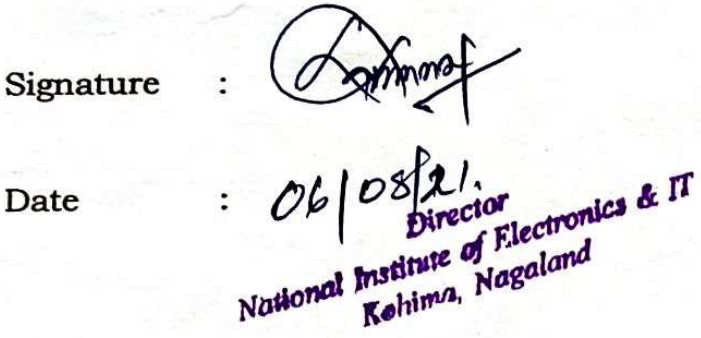 Signature :
Date : 06/08/21.
Director
National Institute of Electronics & IT
Kohima, Nagaland